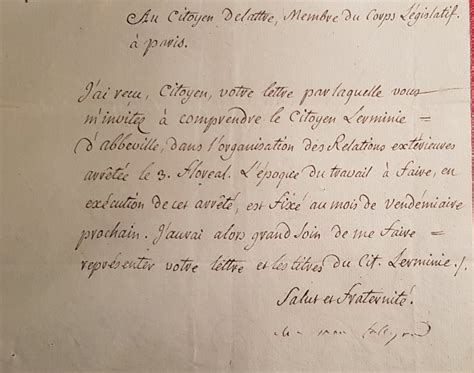 Au Citoyen Delattre, Membre du Corps Législatif.
à Paris.
J'ai reçu, Citoyen, votre lettre par laquelle vous
m'invitez à comprendre le Citoyen Lerminie =
d'abbeville, dans l'organisation des Relations extérieures
arrêtée le 3. Floreal. L'époque du travail à faire, en
exécution de cet arrêté, est fixé au mois de vendémiaire
prochain. J'aurai alors grand soin de me faire =
représenter votre lettre et les titres du Cit. Lerminie./.
Salut et Fraternité.